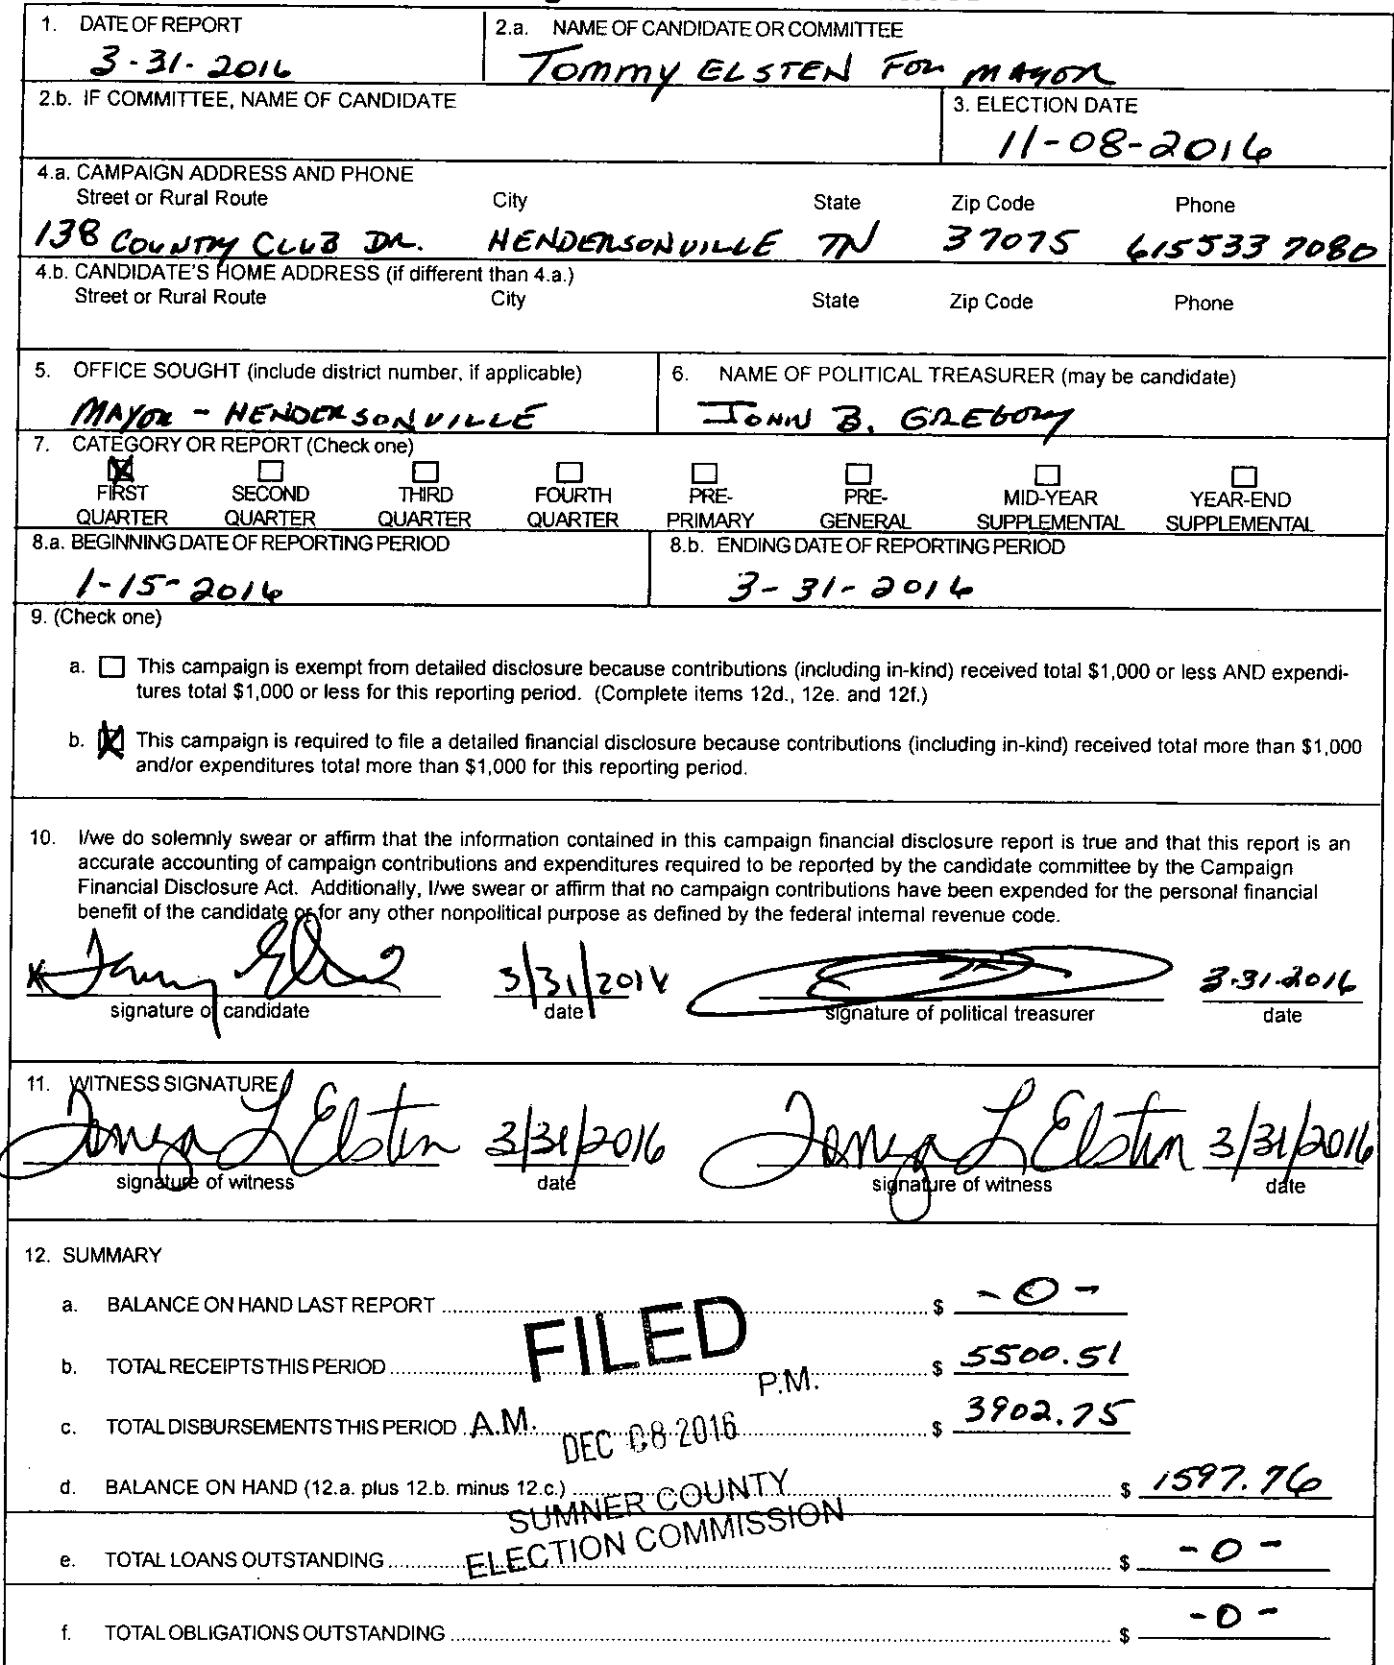 1. DATE OF REPORT
3-31-2016
2.a. NAME OF CANDIDATE OR COMMITTEE
Tommy ELSTEN FOR MAYOR
2.b. IF COMMITTEE, NAME OF CANDIDATE
3. ELECTION DATE
11-08-2016
4.a. CAMPAIGN ADDRESS AND PHONE
Street or Rural Route City State Zip Code Phone
138 COUNTRY CLUB DR. HENDERSONVILLE TN 37075 615 533 7080
4.b. CANDIDATE'S HOME ADDRESS (if different than 4.a.)
Street or Rural Route City State Zip Code Phone
5. OFFICE SOUGHT (include district number, if applicable)
MAYOR - HENDERSONVILLE
6. NAME OF POLITICAL TREASURER (may be candidate)
JOHN B. GREGORY
7. CATEGORY OR REPORT (Check one)
FIRST SECOND THIRD FOURTH PRE- PRE- MID-YEAR YEAR-END
QUARTER QUARTER QUARTER QUARTER PRIMARY GENERAL SUPPLEMENTAL SUPPLEMENTAL
8.a. BEGINNING DATE OF REPORTING PERIOD
1-15-2016
8.b. ENDING DATE OF REPORTING PERIOD
3-31-2016
9. (Check one)
a. This campaign is exempt from detailed disclosure because contributions (including in-kind) received total $1,000 or less AND expendi-
tures total $1,000 or less for this reporting period. (Complete items 12d., 12e. and 12f.)
b. This campaign is required to file a detailed financial disclosure because contributions (including in-kind) received total more than $1,000
and/or expenditures total more than $1,000 for this reporting period.
10. I/we do solemnly swear or affirm that the information contained in this campaign financial disclosure report is true and that this report is an
accurate accounting of campaign contributions and expenditures required to be reported by the candidate committee by the Campaign
Financial Disclosure Act. Additionally, I/we swear or affirm that no campaign contributions have been expended for the personal financial
benefit of the candidate or for any other nonpolitical purpose as defined by the federal internal revenue code.
3/31/2016 3-31-2016
signature of candidate date signature of political treasurer date
11. WITNESS SIGNATURE
Tonya L Elsten 3/31/2016 Tonya L Elsten 3/31/2016
signature of witness date signature of witness date
12. SUMMARY
a. BALANCE ON HAND LAST REPORT $ -0-
b. TOTAL RECEIPTS THIS PERIOD $ 5500.51
c. TOTAL DISBURSEMENTS THIS PERIOD $ 3902.75
d. BALANCE ON HAND (12.a. plus 12.b. minus 12.c.) $ 1597.76
e. TOTAL LOANS OUTSTANDING $ -0-
f. TOTAL OBLIGATIONS OUTSTANDING $ -0-
FILED
A.M. P.M.
DEC 08 2016
SUMNER COUNTY
ELECTION COMMISSION